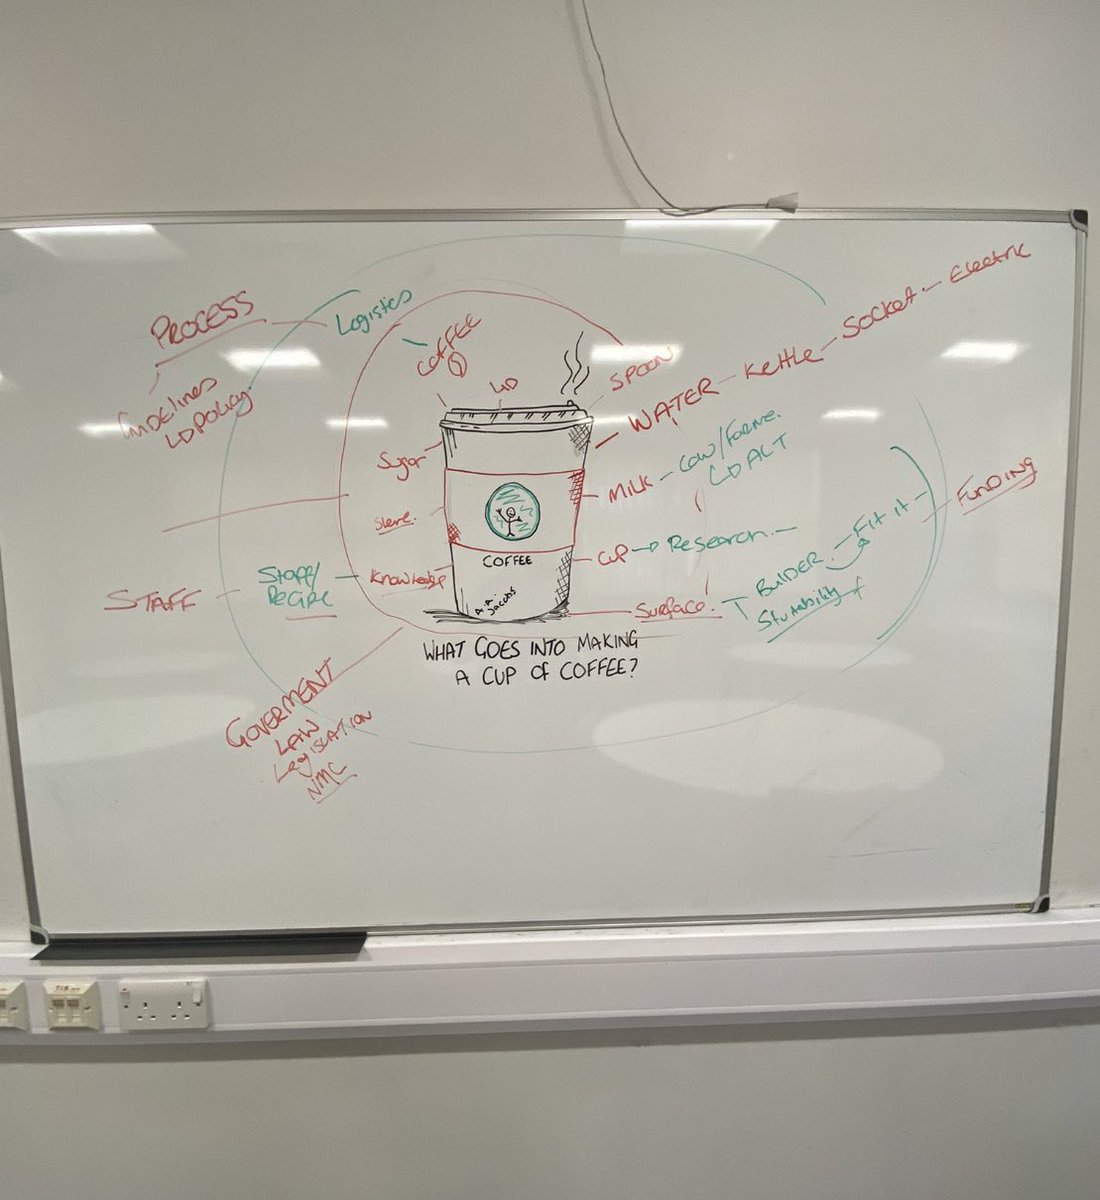 PROCESS
Guidelines
↳ Policy
Logistics
COFFEE
LID
SPOON
WATER — Kettle — Socket — Electric
Sugar
MILK — Cow/Farme.
↳ ALT
Sleve.
FUNDING
COFFEE
CUP → Research.
BUILDER — Fit it
STAFF — Staff/
Recipe
Knowledge
A.A.
Jacobs
Surface!
WHAT GOES INTO MAKING
A CUP OF COFFEE?
GOVERMENT
LAW
Legislation
NMC